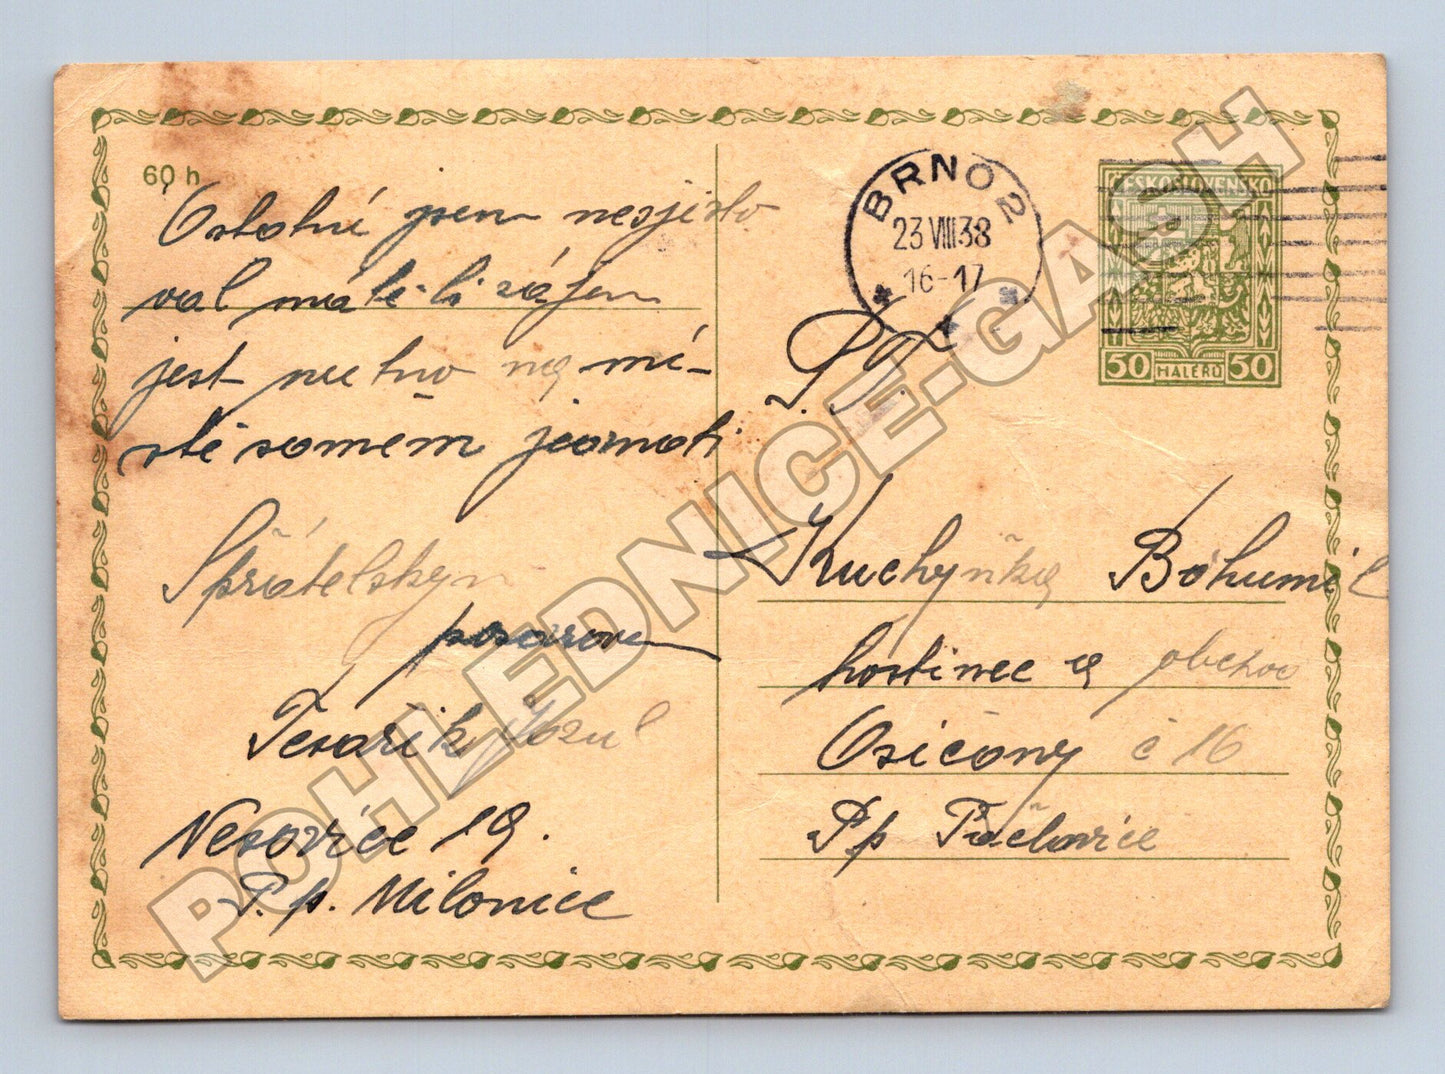 60 h
Ostatní jsem nesjedno
val máte-li zájem
jest nutno na mí-
stě samém jednati
Spřátelským
pozdravem
Tesařík Jozef
Nesovice 19.
P.p. Milonice
BRNO 2
23 VIII 38
16-17
ČESKOSLOVENSKO
50 HALÉŘŮ 50
P.T.
Kuchyňka Bohumil
hostinec a obchod
Osíčany č 16
Pp
POHLEDNICE-GASH